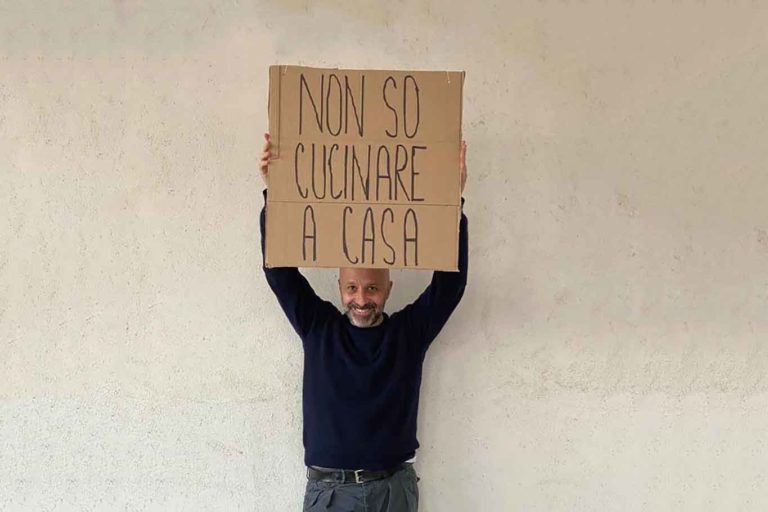 NON SO
CUCINARE
A CASA